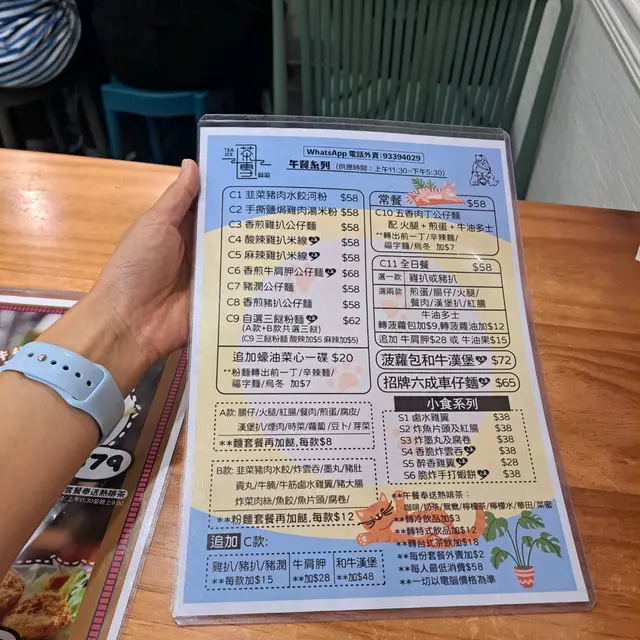 TEA ICE
茶雪
WhatsApp 電話外賣:93394029
午餐系列 (供應時間:上午11:30-下午5:30)
C1 韭菜豬肉水餃河粉 $58
C2 手撕鹽焗雞肉湯米粉 $58
C3 香煎雞扒公仔麵 $58
C4 酸辣雞扒米線 $58
C5 麻辣雞扒米線 $58
C6 香煎牛肩胛公仔麵 $68
C7 豬潤公仔麵 $58
C8 香煎豬扒公仔麵 $58
C9 自選三餸粉麵 $62
(A款+B款共選三餸)
(C9 三餸粉麵 酸辣加5 麻辣加5)
追加蠔油菜心一碟 $20
**粉麵轉出前一丁/辛辣麵/
福字麵/烏冬 加7
A款: 腸仔/火腿/紅腸/餐肉/煎蛋/腐皮/
漢堡扒/煙肉/時菜/蘿蔔/豆卜/芽菜
**麵套餐再加餸,每款$8
B款: 韭菜豬肉水餃/炸雲吞/墨丸/豬肚
貢丸/牛腩/牛筋鹵水雞翼/豬大腸
炸菜肉絲/魚餃/魚片頭/腐卷/
**粉麵套餐再加餸,每款$12
追加 C款:
雞扒/豬扒/豬潤 牛肩胛 和牛漢堡
**每款加$15 **加$28 **加$48
常餐 $58
C10 五香肉丁公仔麵
配 火腿+煎蛋+牛油多士
**轉出前一丁/辛辣麵/
福字麵/烏冬 加$7
C11 全日餐 $58
選一款 雞扒或豬扒
選兩款 煎蛋/腸仔/火腿/
餐肉/漢堡扒/紅腸
牛油多士
轉菠蘿包加$9,轉菠蘿油加$12
追加 牛肩胛$28 或 牛油果$15
菠蘿包和牛漢堡 $72
招牌六成車仔麵 $65
小食系列
S1 鹵水雞翼 $38
S2 炸魚片頭及紅腸 $38
S3 炸墨丸及腐卷 $38
S4 香脆炸雲吞 $38
S5 醉香雞翼 $28
S6 脆炸手打蝦餅 $38
**午餐奉送熱啡茶:
咖啡/奶茶/鴛鴦/檸檬茶/檸檬水/華田/菜蜜
**轉冷飲品加$3
**轉特式飲品加$12
**轉台式茶飲加$18
**每份套餐外賣加$2
**每人最低消費$58
**一切以電腦價格為準
套餐奉送熱啡茶